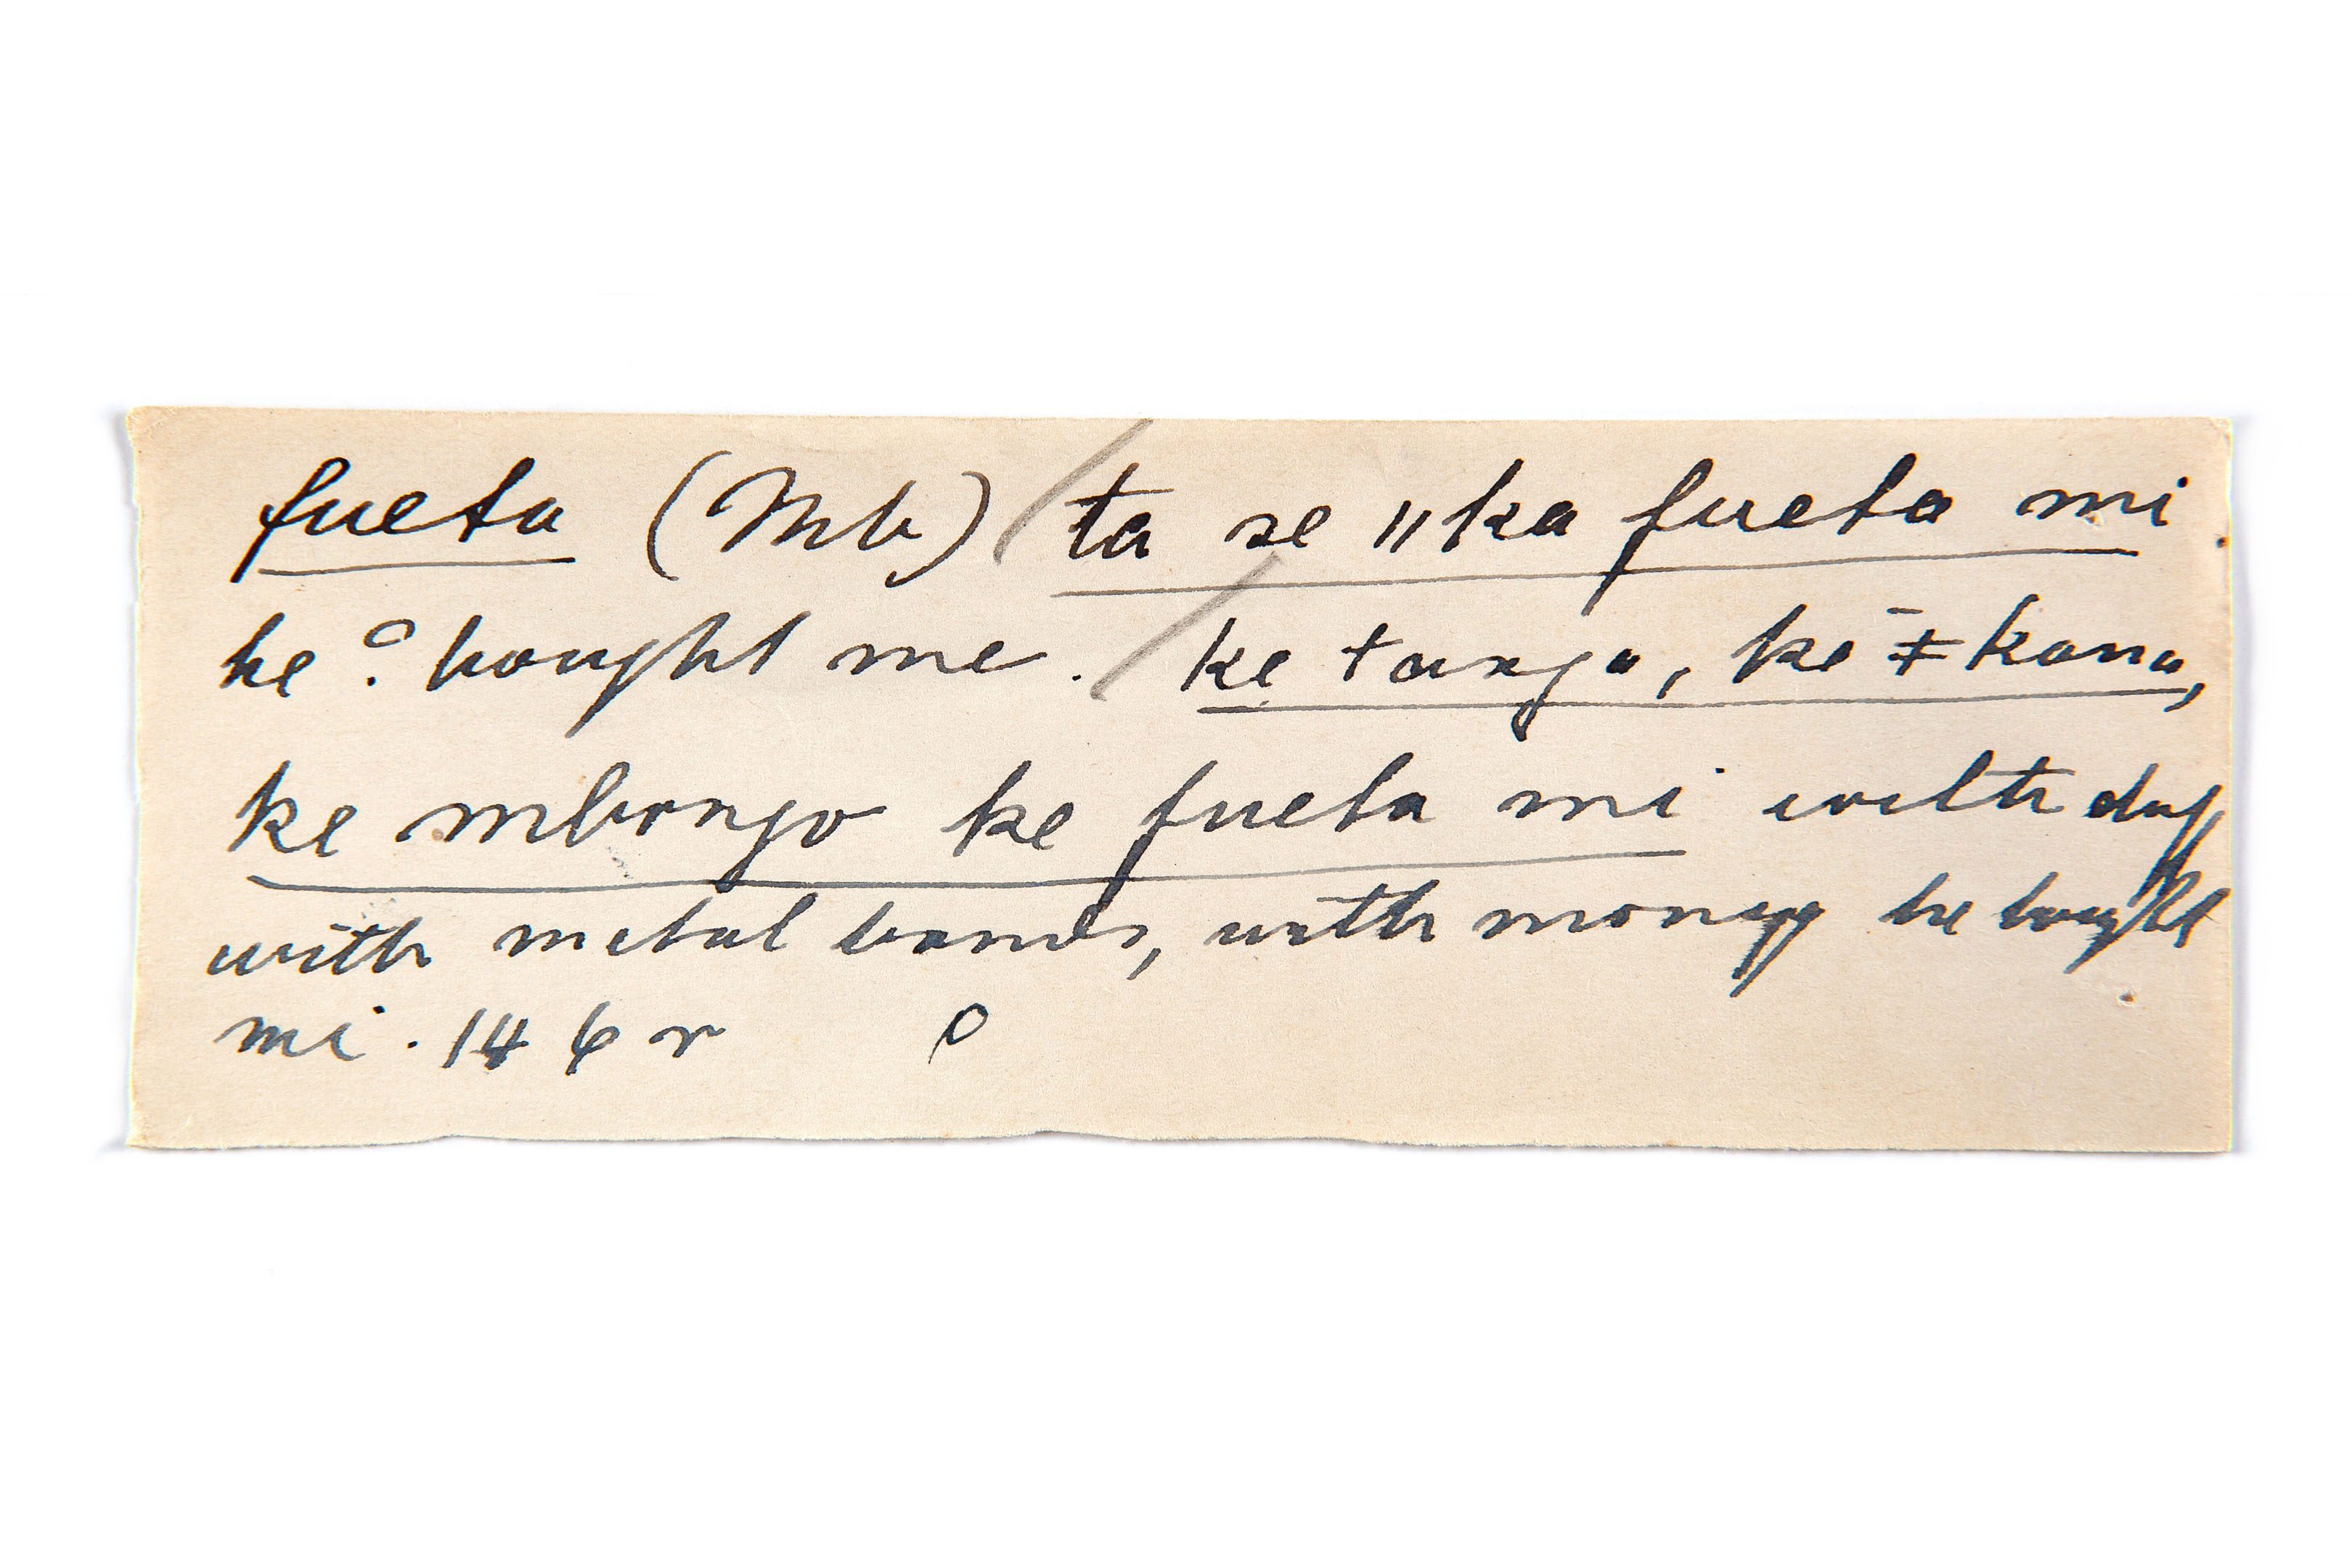 fueta (Mb) / ta se ǁka fueta mi
he ? bought me. / ke tanga, ke ǂkana,
ke mbongo ke fueta mi with
with metal bands, with money he bought
mi. 146 r